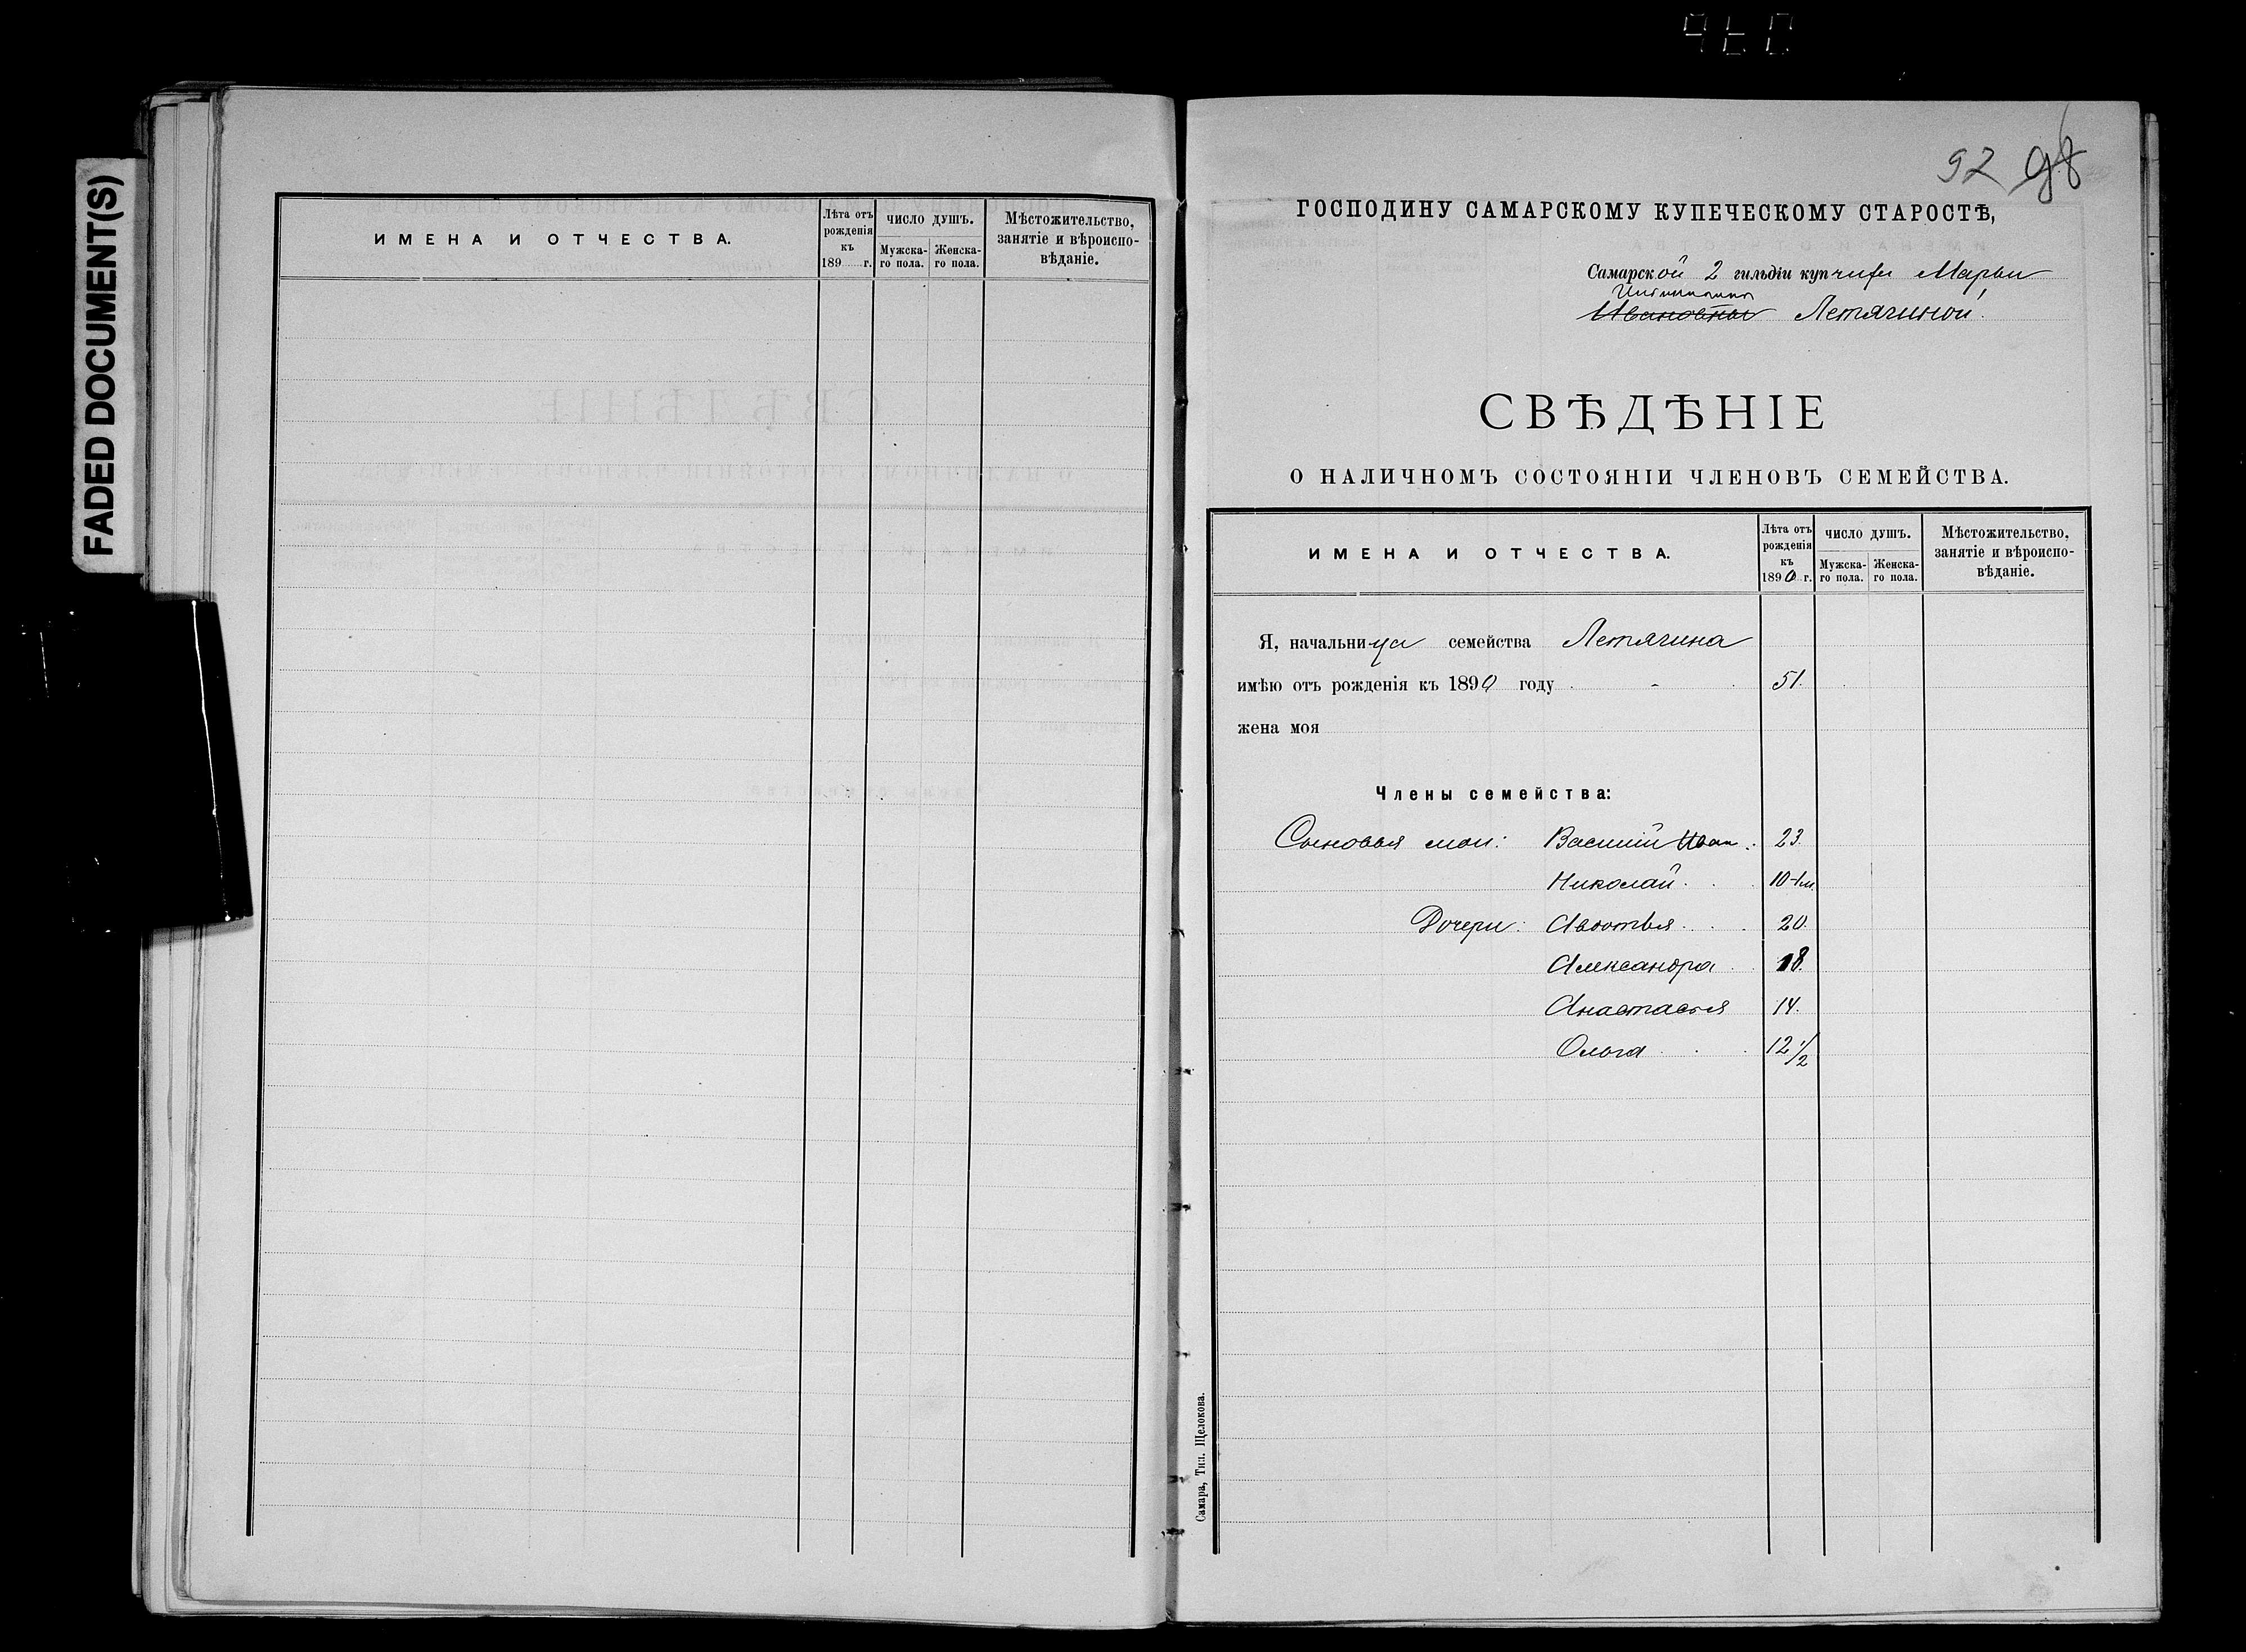 FADED DOCUMENT(S)
ИМЕНА И ОТЧЕСТВА.
Лѣта отъ рожденія къ 189 г.
ЧИСЛО ДУШЪ.
Мужска-го пола.
Женска-го пола.
Мѣстожительство, занятіе и вѣроиспо-вѣданіе.
92 98
ГОСПОДИНУ САМАРСКОМУ КУПЕЧЕСКОМУ СТАРОСТѢ,
Самарской 2 гильдіи купчихи Марьи
Ивановны Летягиной.
СВѢДѢНІЕ
О НАЛИЧНОМЪ СОСТОЯНІИ ЧЛЕНОВЪ СЕМЕЙСТВА.
ИМЕНА И ОТЧЕСТВА.
Лѣта отъ рожденія къ 1890 г.
ЧИСЛО ДУШЪ.
Мужска-го пола.
Женска-го пола.
Мѣстожительство, занятіе и вѣроиспо-вѣданіе.
Я, начальница семейства Летягина
имѣю отъ рожденія къ 1890 году 51.
жена моя
Члены семейства:
Сыновья мои: Василій Иван. 23.
Николай.
Дочери: Авдотья. 20.
Александра 18.
Анастасья 14.
Ольга 12 1/2
Самара, Тип. Щелокова.